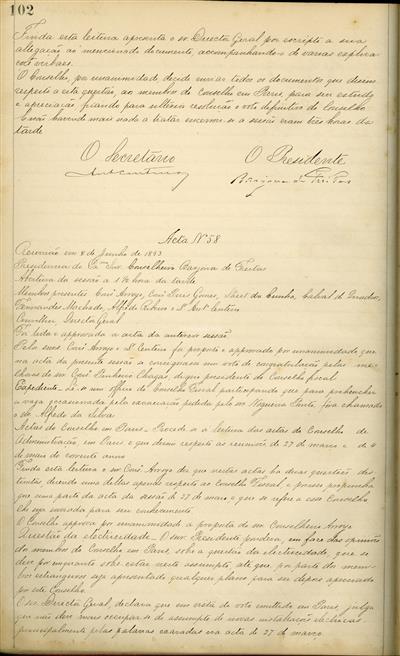 102
Finda esta leitura apresenta o sr. Director Geral por escripto a sua
allegação ao mencionado documento, accompanhando-o de varias explica-
ções verbaes.
O Conselho, por unanimidade, decide enviar todos os documentos que dizem
respeito a esta questão, ao membro do Conselho em Paris, para seu estudo
e apreciação ficando para ulterior resolução o voto definitivo do Conselho.
E não havendo mais nada a tratar encerrou-se a sessão eram tres horas da
tarde
O Secretário O Presidente
Barjona de Freitas
Acta Nº 58
Reunião em 8 de Junho de 1893
Presidencia do Exmo Snr. Conselheiro Barjona de Freitas
Abertura da sessão a 1 ½ hora da tarde
Membros presentes Consº Arroyo, Consº Pires Gomes, da Cunha, Cabral de
Fernandes Machado, Alfredo Ribeiro e Dr. Antº Centeno
Director Geral
Foi lida e approvada a acta da anterior sessão
Pelos snrs. Consº Arroyo e Dr. Centeno foi proposto e approvado por unanimidade que
na acta da presente sessão se consignasse um voto de congratulação pelas me-
lhoras do snr. Consº Pinheiro Chagas, digno presidente do Conselho fiscal
Expediente. Lê-se um officio do Conselho Fiscal participando que para preencher
a vaga occasionada pela exoneração pedida pelo snr Nogueira Pinto, fora chamado
o snr Alfredo da Silva.
Actas do Conselho em Paris. Procede-se á leitura das actas do Conselho de
Administração, em Paris e que dizem respeito ás reuniões de 27 de março e de 4
de maio do corrente anno
Finda esta leitura o snr Consº Arroyo diz que n'estas actas ha duas questões dis-
tinctas, sendo uma d'ellas apenas respeito ao Conselho Fiscal e por isso propunha
que uma parte da acta da sessão de 27 de março e que se refere a esse Conselho
lhe seja enviada para seu conhecimento.
O Conselho approva por unanimidade a proposta do snr Conselheiro Arroyo
Questão da electricidade. O snr. Presidente pondera, em face das opiniões
do membro do Conselho em Paris sobre a questão da electricidade, que se
deve por emquanto sobre estar n'este assumpto até que por parte dos mem-
bros estrangeiros seja apresentado qualquer plano para ser depois apreciado
por este Conselho.
O snr. Director Geral, declara que em vista do voto emittido em Paris julga
que não deve mais occupar-se do assumpto de novas installações electricas
principalmente pelas palavras exaradas na acta de 27 de março.